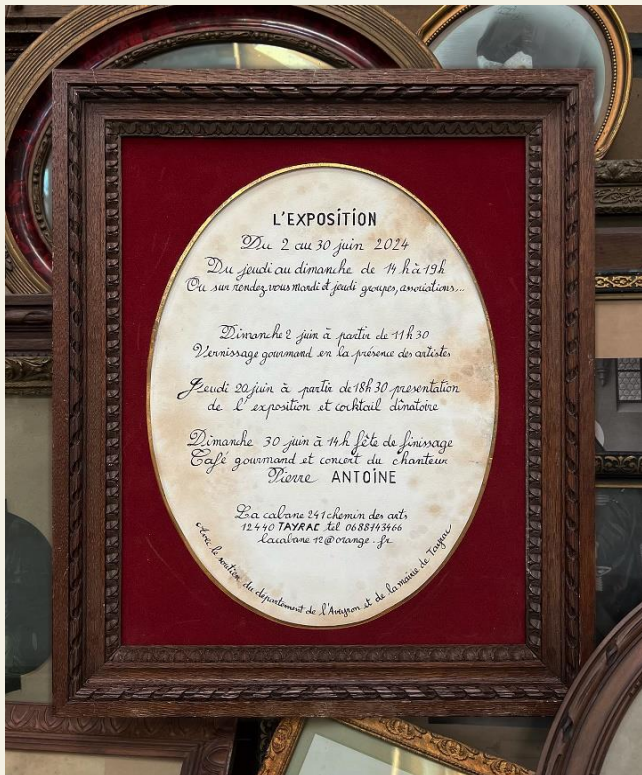 L'EXPOSITION
Du 2 au 30 juin 2024
Du jeudi au dimanche de 14h à 19h
Ou sur rendez vous mardi et jeudi groupes, associations...
Dimanche 2 juin à partir de 11h30
Vernissage gourmand en la présence des artistes
Jeudi 20 juin à partir de 18h30 presentation
de l'exposition et cocktail dînatoire
Dimanche 30 juin à 14h fête de finissage
Café gourmand et concert du chanteur
Pierre ANTOINE
La cabane 241 chemin des arts
12440 TAYRAC tel 0688743466
lacabane12@orange.fr
Avec le soutien du département de l'Aveyron et de la mairie de Tayrac